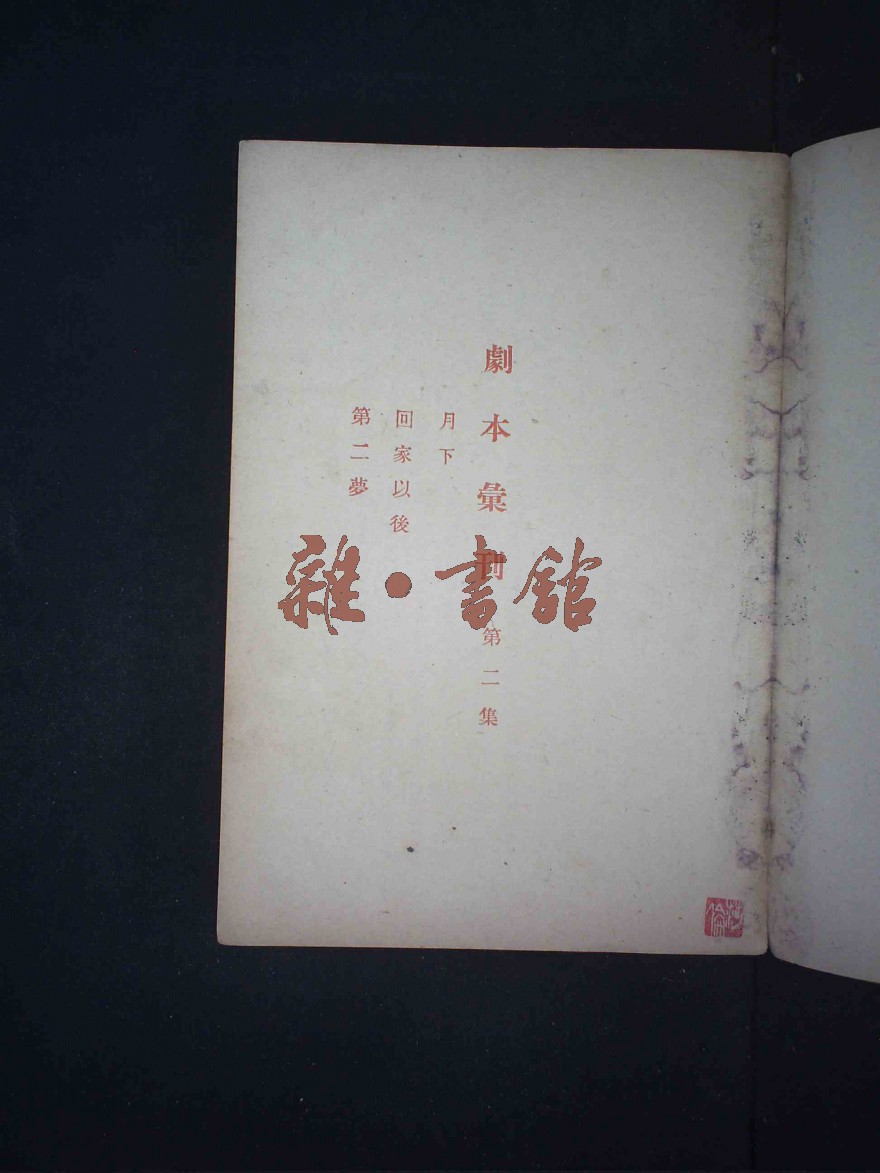 劇本彙刊 第二集
月下
回家以後
第二夢
雜·書館